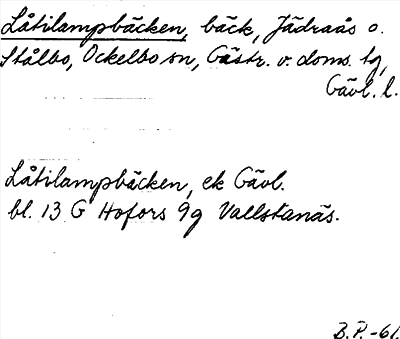 Låtilampbäcken, bäck, Jädraås o.
Stålbo, Ockelbo sn, Gästr. v. doms. tg,
Gävl. l.
Låtilampbäcken, ek Gävl.
bl. 13 G Hofors 9g Vallstanäs.
B.P.-61.